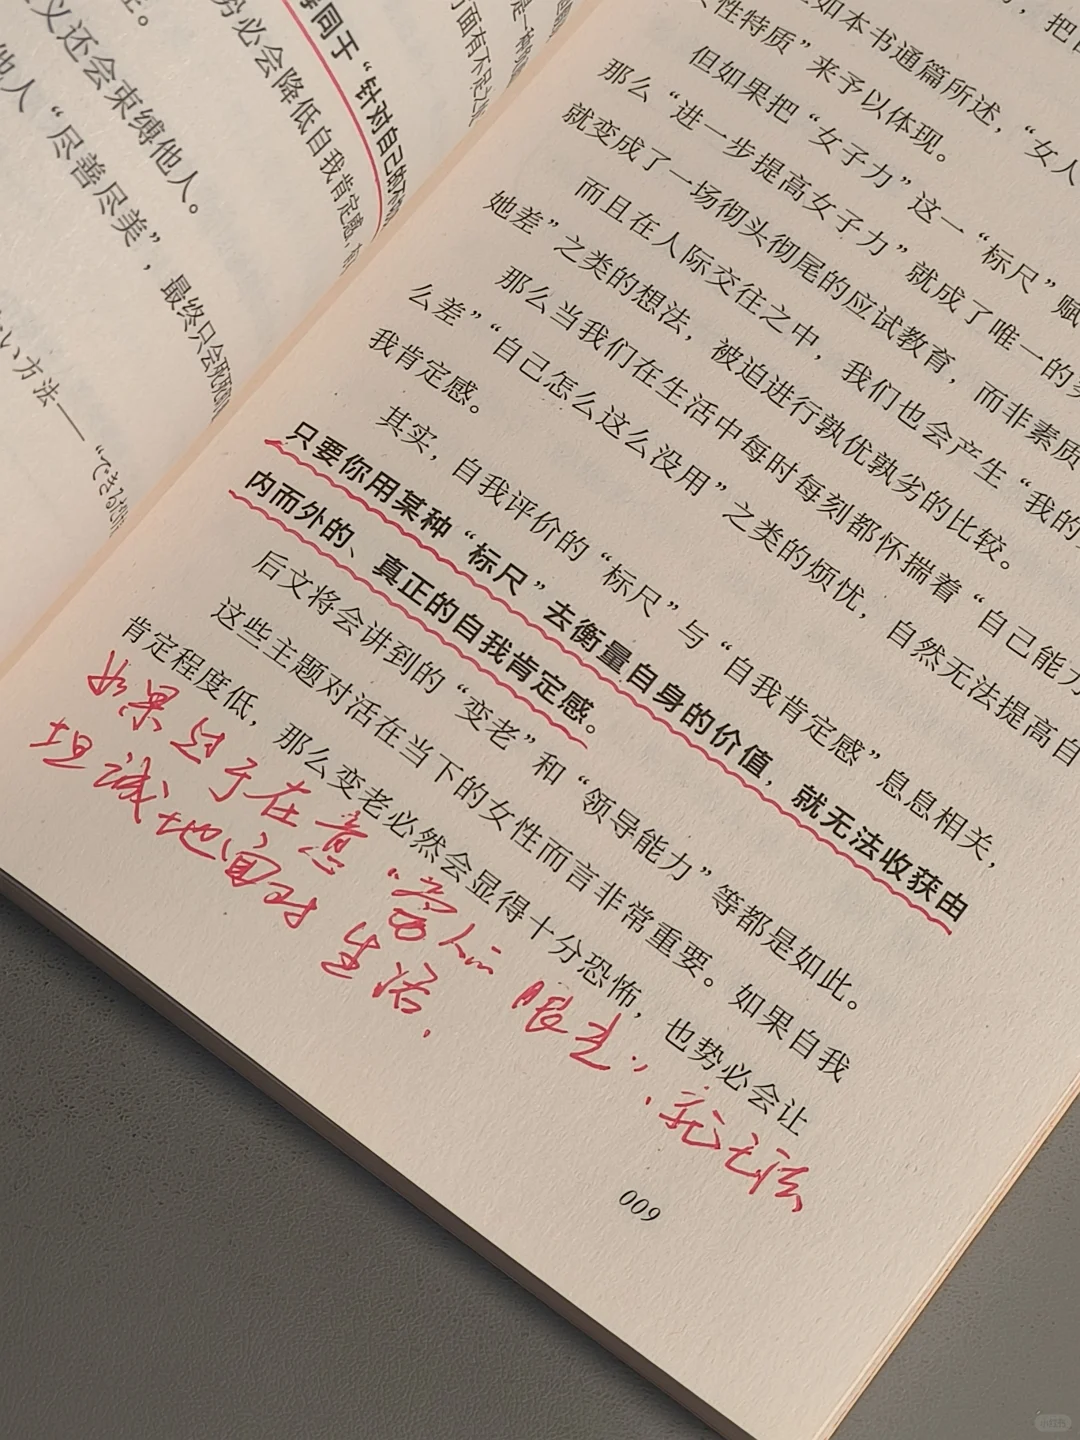 性。
义还会束缚他人。
他人“尽善尽美”，最终只会
ない方法——“できる
等同于“针对自己的不
势必会降低自我肯定感，
方面有不足之
是一种
，把
如本书通篇所述，“女人
性特质”来予以体现。
但如果把“女子力”这一“标尺”赋
那么“进一步提高女子力”就成了唯一的
就变成了一场彻头彻尾的应试教育，而非素质
而且在人际交往之中，我们也会产生“我的
她差”之类的想法，被迫进行孰优孰劣的比较。
那么当我们在生活中每时每刻都怀揣着“自己能力
么差”“自己怎么这么没用”之类的烦忧，自然无法提高自
我肯定感。
其实，自我评价的“标尺”与“自我肯定感”息息相关，
只要你用某种“标尺”去衡量自身的价值，就无法收获由
内而外的、真正的自我肯定感。
后文将会讲到的“变老”和“领导能力”等都是如此。
这些主题对活在当下的女性而言非常重要。如果自我
肯定程度低，那么变老必然会显得十分恐怖，也势必会让
如果过于在意“旁人眼光”，就无法
坦诚地面对生活.
009
小红书